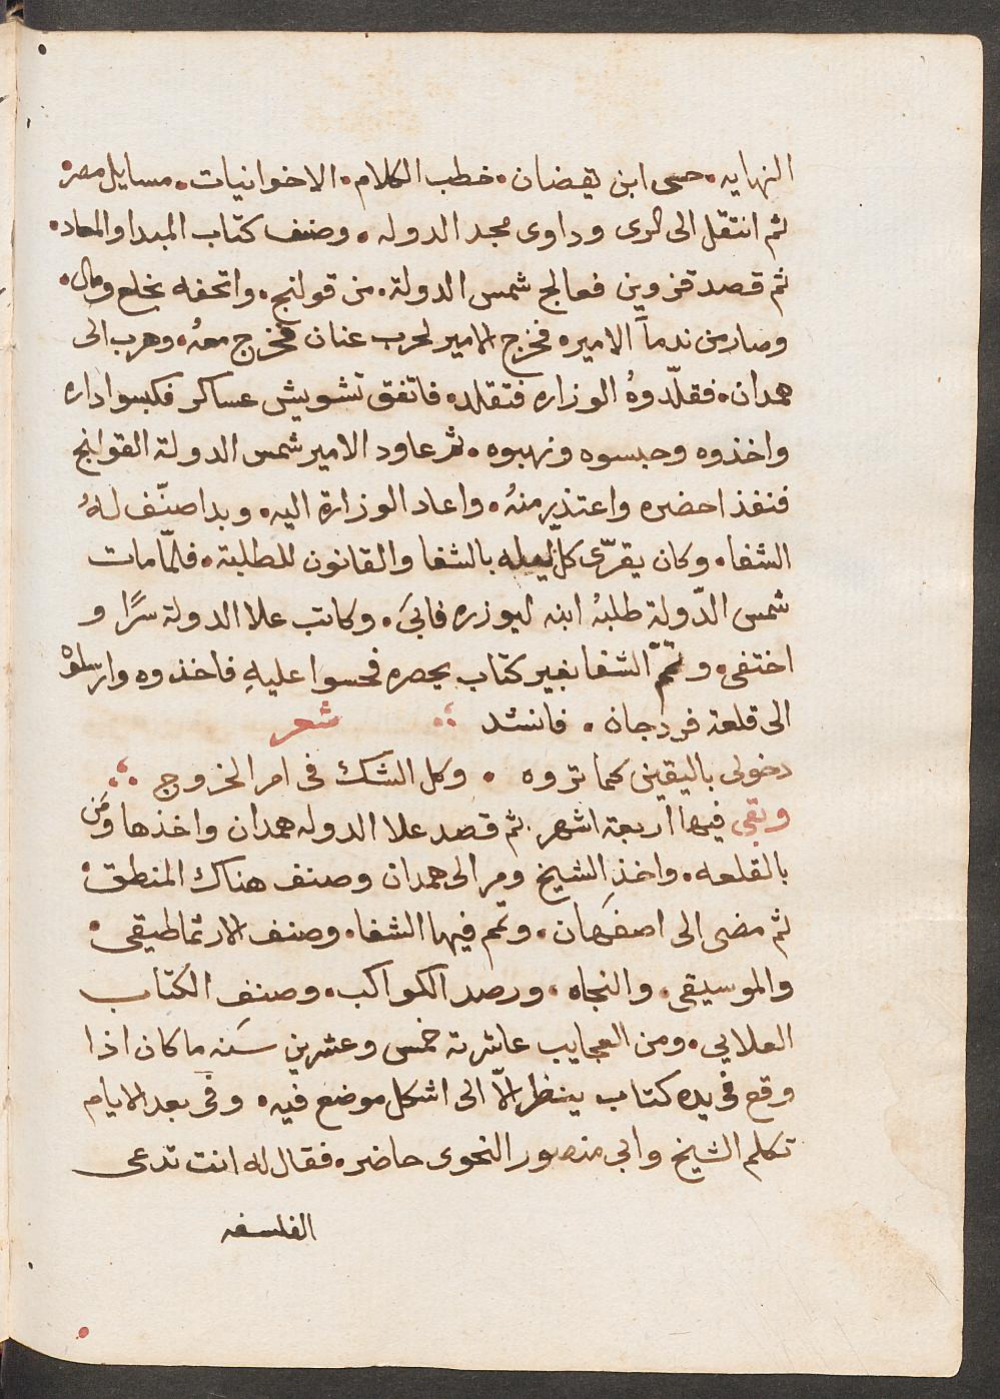 النهايه. حى ابن يقضان. خطب الكلام. الاخوانيات. مسايل
ثم انتقل الى الرى وداوى مجد الدوله. وصنف كتاب المبدا والمعاد.
ثم قصد قزوين فعالج شمس الدولة. من قولنج. واتحفه بخلع ومال.
وصار من ندمآ الاميره فخرج الامير لحرب عنان فخرج معهُ. وهرب الى
همدان. فقلّدوهُ الوزاره فتقلده فاتفق تشويش عساكر فكبسوا داره
واخذوه وحبسوه ونهبوه. ثم عاود الامير شمس الدولة القولنج
فنفذ احضره واعتذير منهُ. واعاد الوزارة اليه. وبدا صنّف لهُ
الشفا. وكان يقرّى كل ليله بالشفا والقانون للطلبة. فلمّا مات
شمس الدّولة طلبهُ ابنه ليوزره فابىَ. وكاتب علا الدولة سرًا و
اختفى. وتمّم الشفا بغير كتاب يحصره فحسوا عليهِ فاخذوه وارسلوهُ
الى قلعة فردجان. فانشد شعر
دخولى باليقين كما تروه . وكل الشك فى امر الخروج
وبقى فيها اربعة اشهر. ثم قصد علا الدوله همدان واخذها ومَن
بالقلعه. واخذ الشيخ ومر الى همدان وصنف هناك المنطق.
ثم مضى الى اصفهان. وتمم فيها الشفا. وصنف الارتماطيقى.
والموسيقى. والنجاه. ورصد الكواكب. وصنف الكتاب
العلايي. ومن العجايب عاشرته خمس وعشرين سنه ما كان اذا
وقع فى يده كتاب ينظر الّا الى اشكل موضع فيه. وفى بعد الايام
تكلم الشيخ وابى منصور النحوى حاضره فقال له انت تدعى
الفلسفه